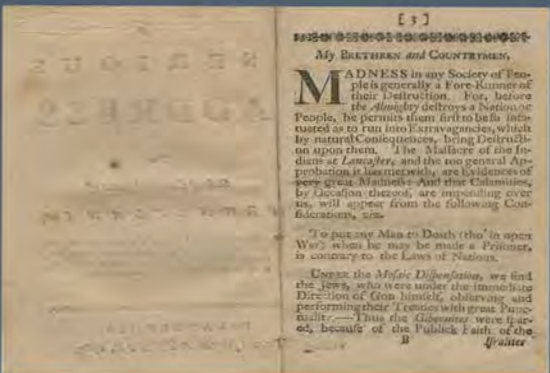 [ 3 ]
My BRETHREN and COUNTRYMEN,
MADNESS in any Society of Peo-
ple is generally a Fore-Runner of
their Destruction. For, before
the Almighty destroys a Nation or
People, he permits them first to be so infa-
tuated as to run into Extravagancies, which
by natural Consequences, bring Destructi-
on upon them. The Massacre of the In-
dians at Lancaster, and the too general Ap-
probation it has met with, are Evidences of
very great Madness And that Calamities,
by Occasion thereof, are impending over
us, will appear from the following Con-
siderations, viz.
To put any Man to Death (tho' in open
War) when he may be made a Prisoner,
is contrary to the Laws of Nations.
UNDER the Mosaic Dispensation, we find
the Jews, who were under the immediate
Direction of GOD himself, observing and
performing their Treaties with great Punc-
tuality.—Thus the Gibeonites were spar-
ed, because of the Publick Faith of the
B Israites